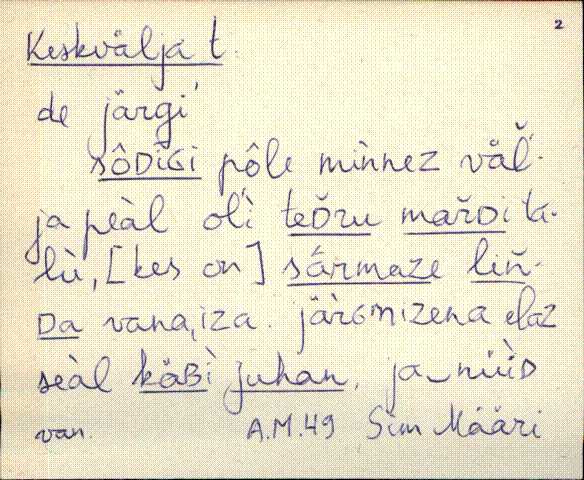 2
Keskvälja t.
de järgi
sôDiGi pôle minnez väľ-
ja peàl oľì teŏru mařDi ta-
lù, [kes on] sármaze liň-
Da vana, iza. järGmizena elaz
seàl käBì juhan, ja nüìD
van. A.M.49 Sim Määri